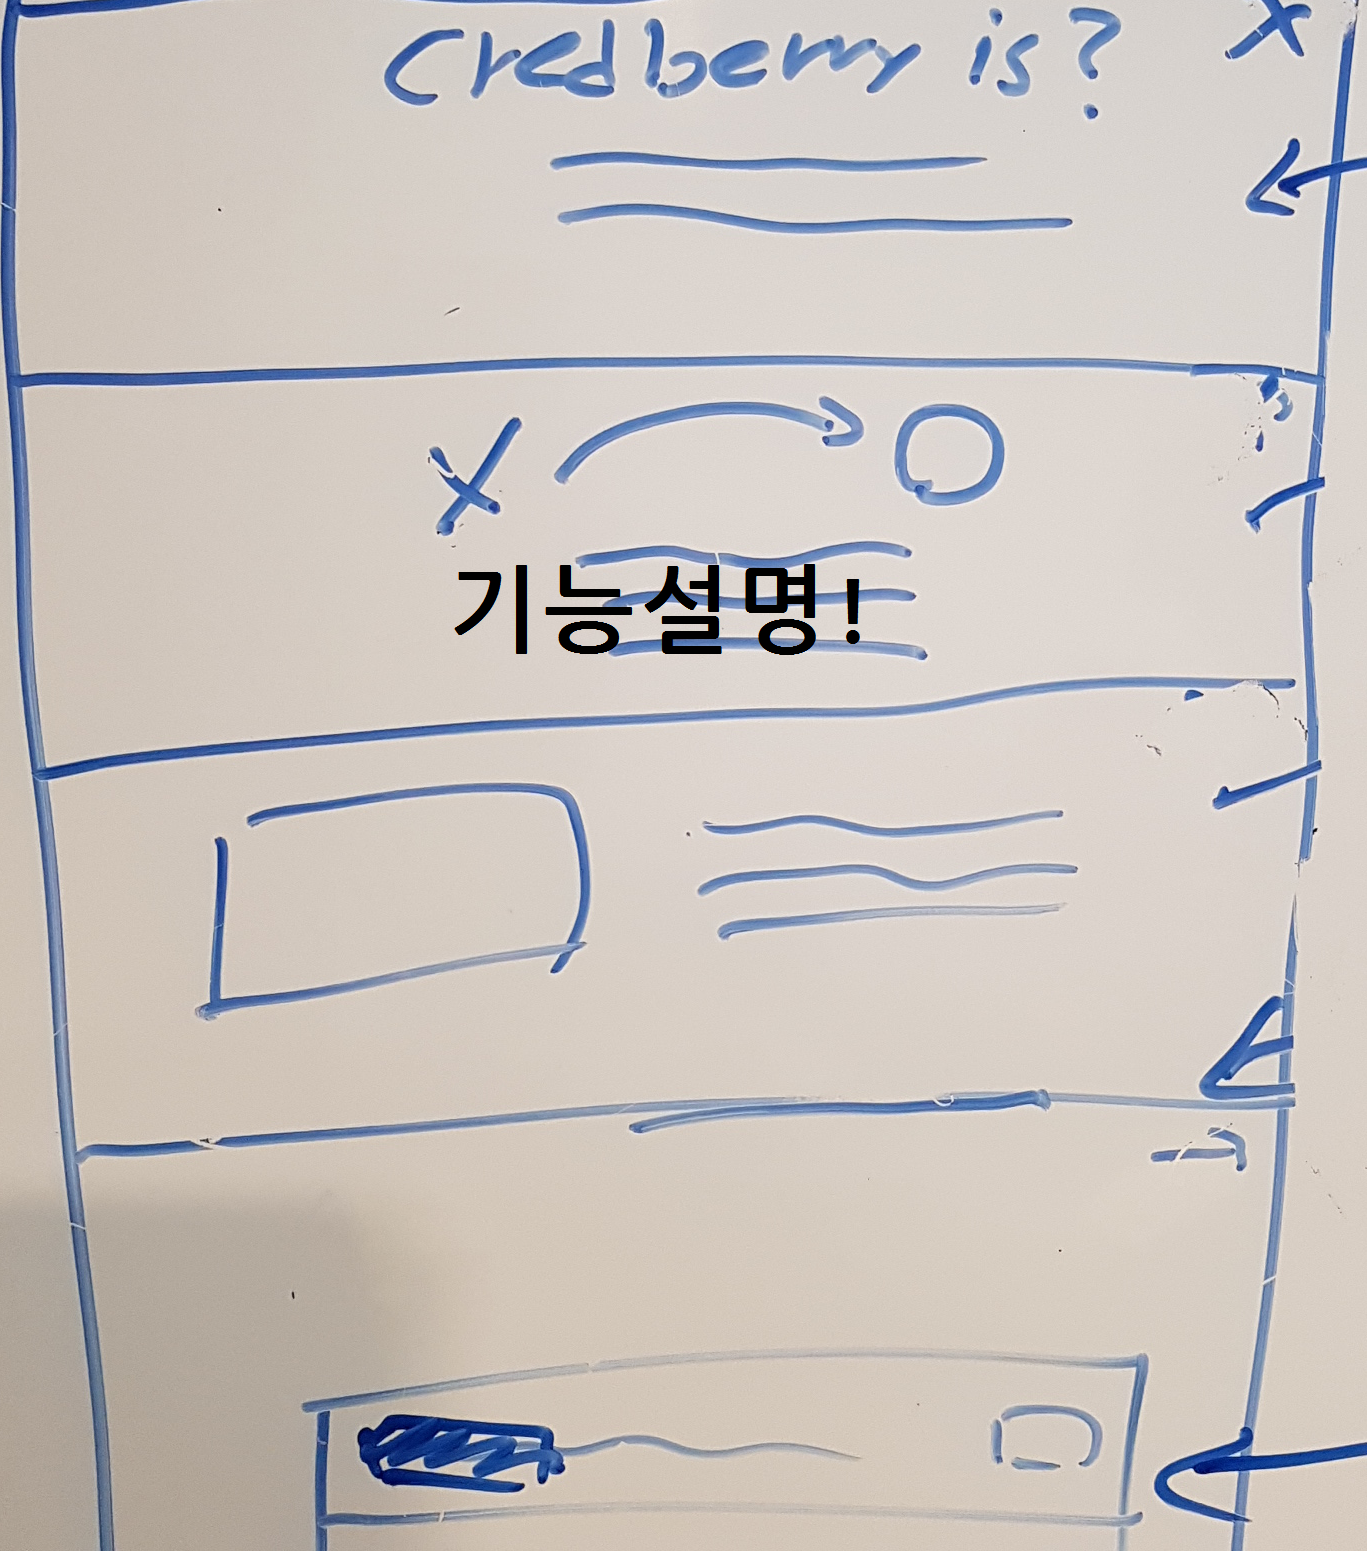 Credberry is?
X
X
기능설명!